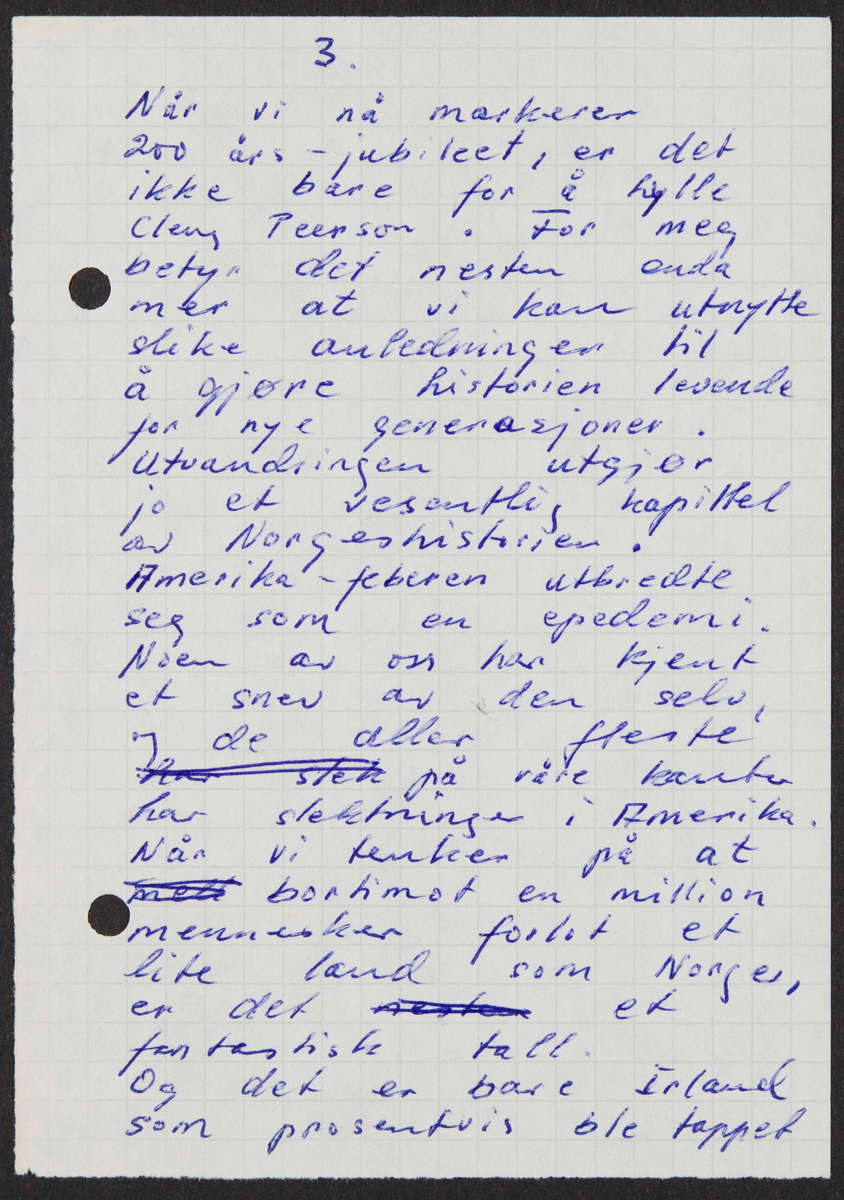 3.
Når vi nå markerer
200 års-jubileet, er det
ikke bare for å hylle
Cleng Peerson. For meg
betyr det nesten enda
mer at vi kan utnytte
slike anledninger til
å gjøre historien levende
for nye generasjoner.
Utvandringen utgjør
jo et vesentlig kapittel
av Norgeshistorien.
Amerika-feberen utbredte
seg som en epedemi.
Noen av oss har kjent
et snev av den selv,
og de aller fleste
har slekt på våre kanter
har slektninger i Amerika.
Når vi tenker på at
bortimot en million
mennesker forlot et
lite land som Norge,
er det nesten et
fantastisk tall.
Og det er bare Irland
som prosentvis ble tappet